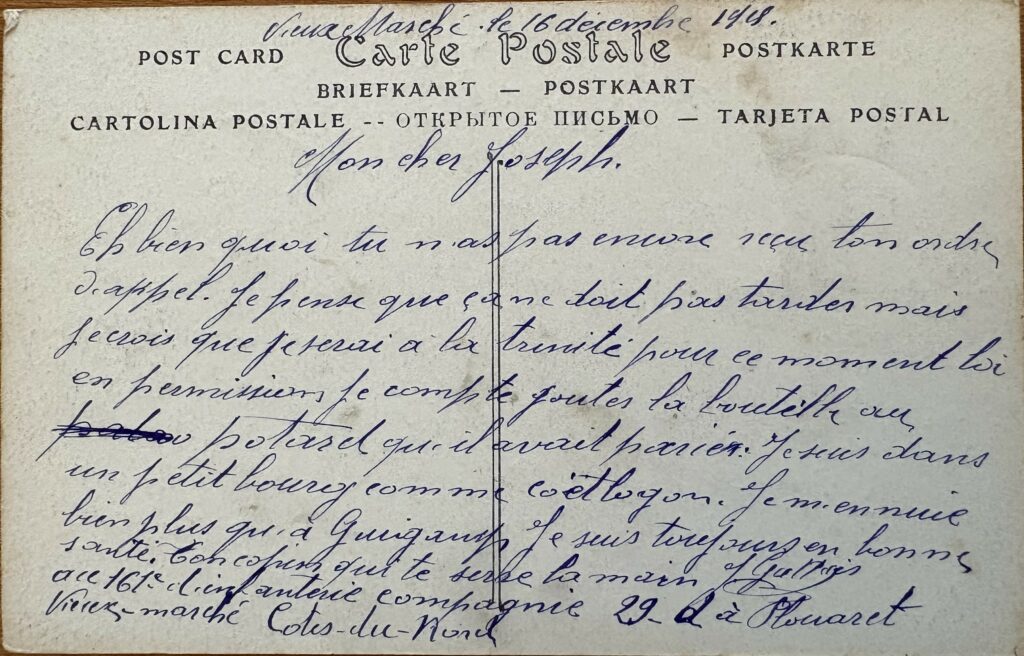 Vieux Marché. le 16 décembre 1918.
POST CARD Carte Postale POSTKARTE
BRIEFKAART — POSTKAART
CARTOLINA POSTALE -- ОТКРЫТОЕ ПИСЬМО — TARJETA POSTAL
Mon cher Joseph.
Eh bien quoi tu n'as pas encore reçu ton ordre
d'appel. Je pense que ça ne doit pas tarder mais
je crois que je serai à la trinité pour ce moment loi
en permission, je compte gouter la boutelle au
potard qu'il avait pariér. Je suis dans
un petit bourg comme coëtlogon. Je m'ennuie
bien plus qu'à Guigamp Je suis toujours en bonne
santé. Ton copin qui te serre la main
au 161e d'infanterie compagnie 29-d à Plouaret
Vieux-marché Cotes-du-Nord